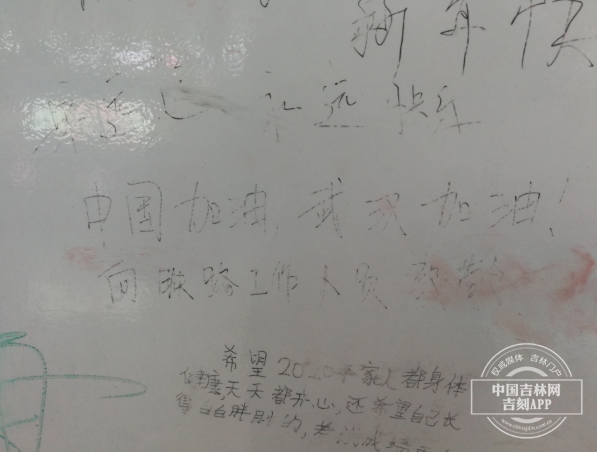 新年快
永远快乐
中国加油,武汉加油!
向铁路工作人员致敬
希望2020年家人都身体
健康天天都开心,还希望自己长
得白白胖胖的,考试成绩
权威媒体 吉林门户
中国吉林网
吉刻APP